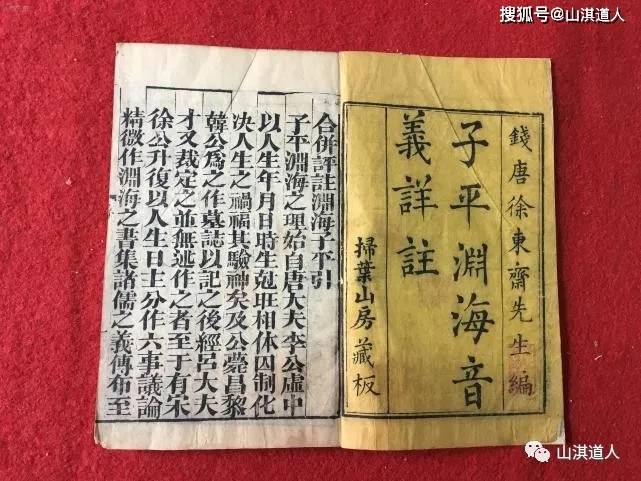 搜狐号@山淇道人
錢唐徐東齋先生編
子平淵海音
義詳註
掃葉山房藏板
合併評註淵海子平引
子平淵海之理始自唐大夫李公虛中
以人生年月日時生尅旺相休囚制化
决人生之禍福其驗神矣及公薨昌黎
韓公爲之作墓誌以記之後經呂大夫
才又裁定之並無述作之者至于有宋
徐公升復以人生日主分作六事議論
精微作淵海之書集諸儒之義傳布至
山淇道人